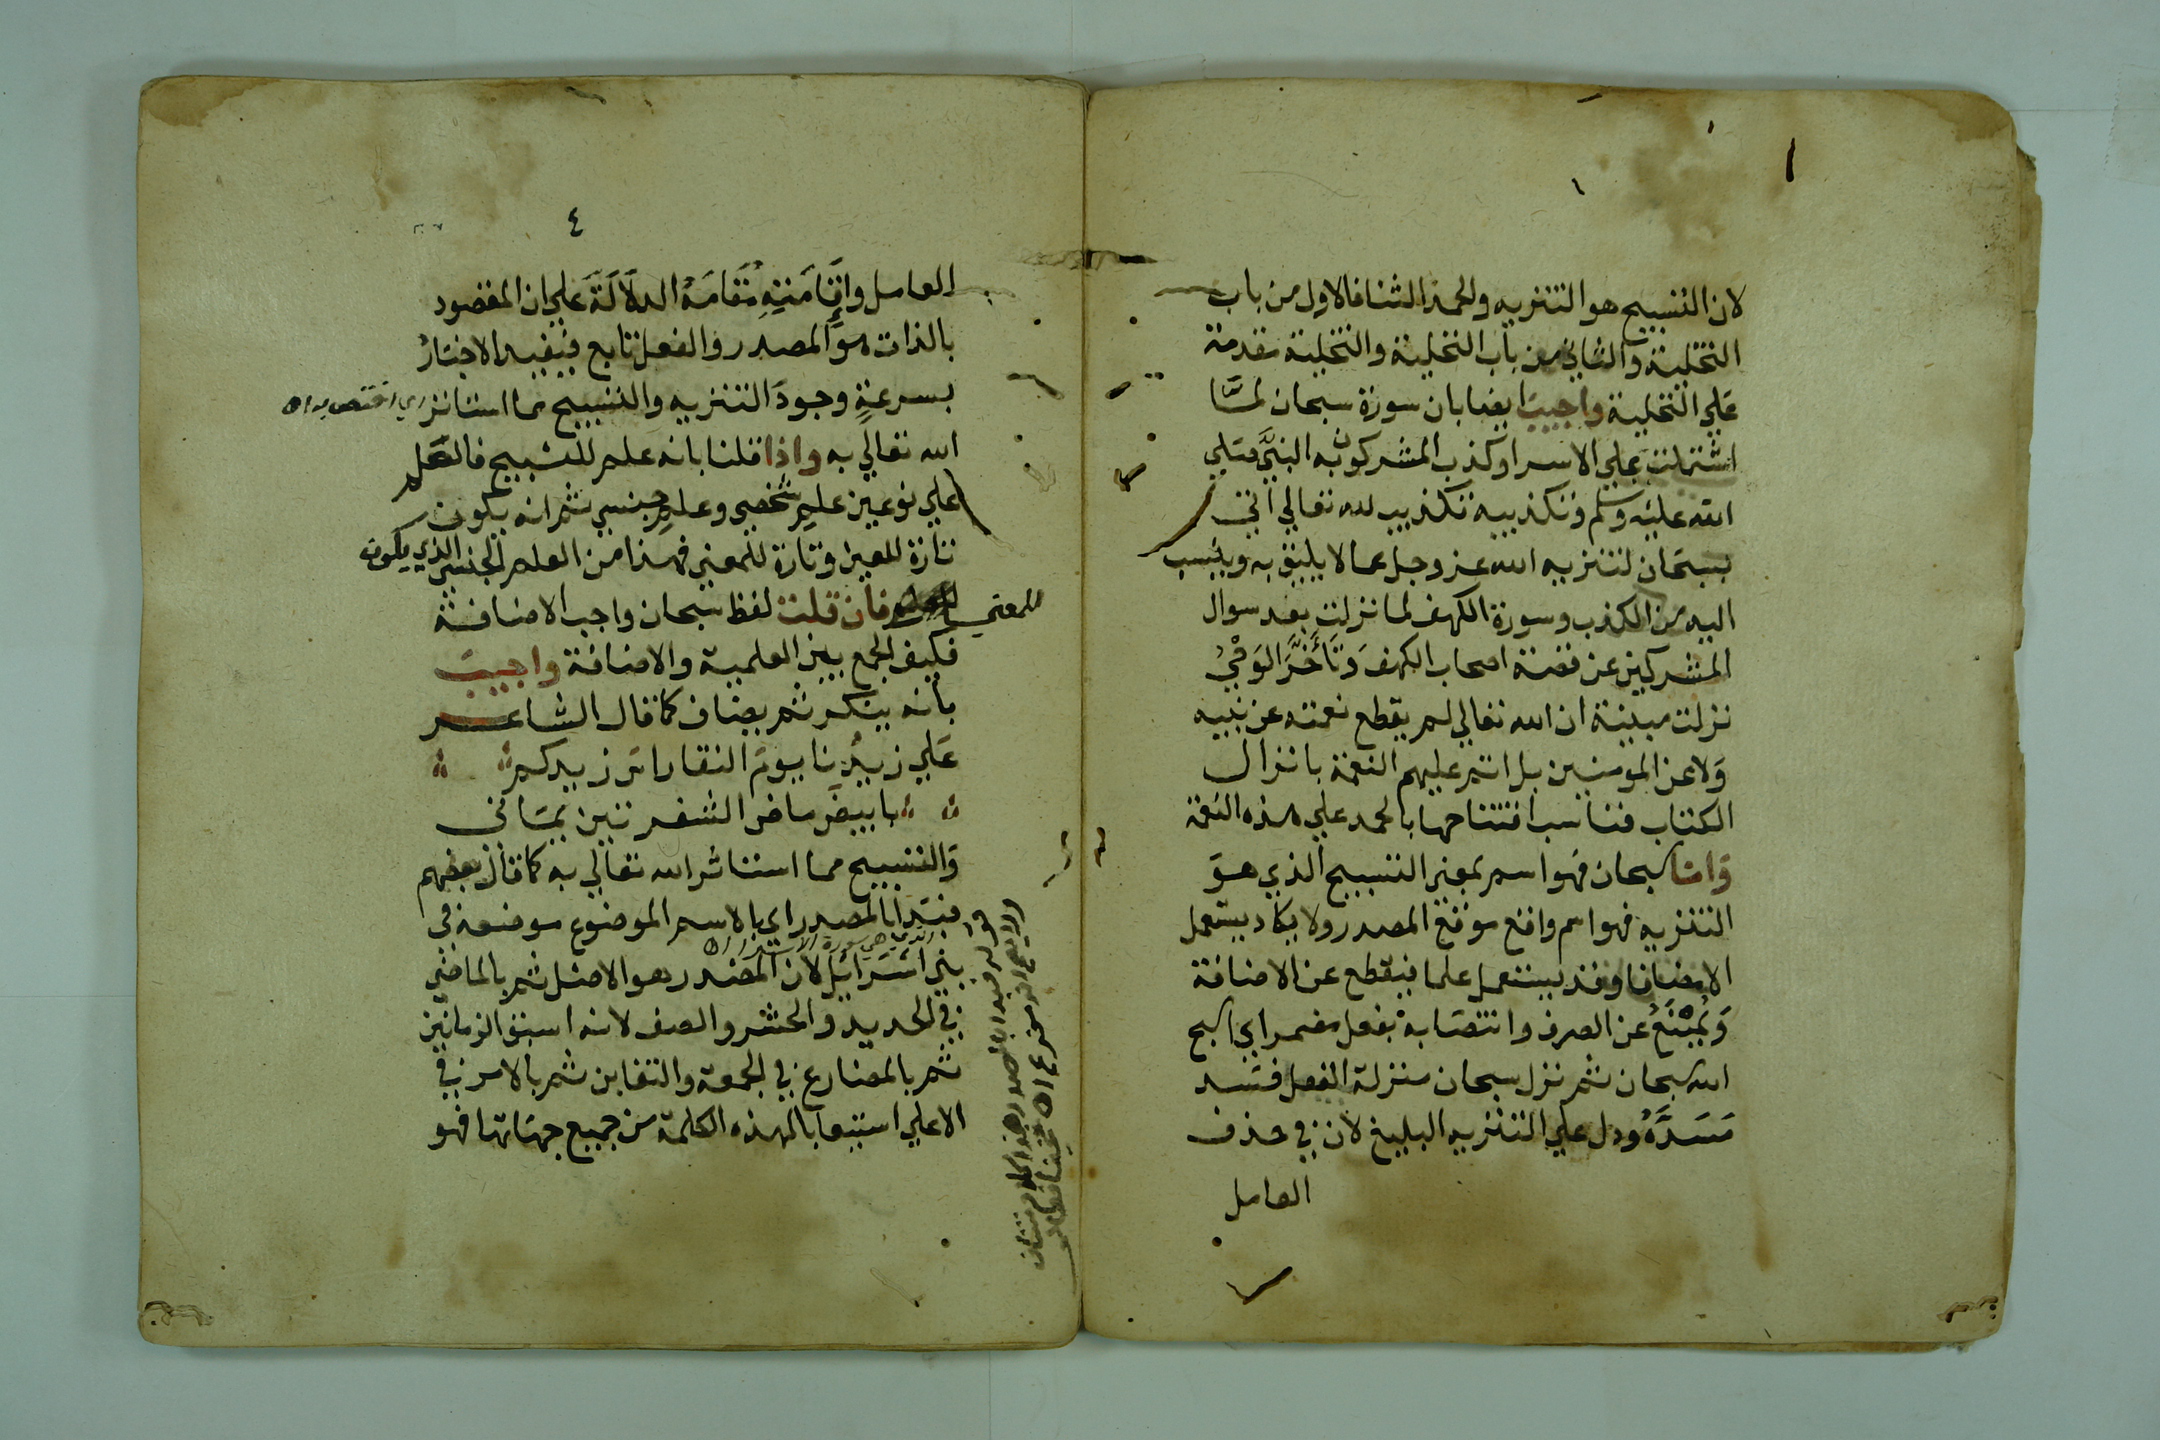 لان التسبيح هو التنزيه والحمد الثنا فالاول من باب
التخلية والثاني من باب التحلية والتخلية مقدمة
علي التحلية واجيب ايضا بان سورة سبحان لمّا
اشتملت علي الاسرا وكذب المشركون به النبيّ صلي
الله عليه وسلم وتكذيبه تكذيب لله تعالي اتي
بسبحان لتنزيه الله عز وجل عما لا يليق به وينسب
اليه من الكذب وسورة الكهف لما نزلت بعد سوال
المشركين عن قصة اصحاب الكهف وتَأَخَّرَ الوَحْيُ
نزلت مبينة ان الله تعالي لم يقطع نعمته عن نبيه
وَلا عن المومنين بل اتم عليهم النعمة بانزال
الكتاب فناسب افتتاحها بالحمد علي هذه النعمة
وَامّا سبحان فهو اسم بمعني التسبيح الذي هوَ
التنزيه فهو اسم واقع موقع المصدر ولا يكاد يستعمل
الا مضافا وقد يستعمل علما فيقطع عن الاضافة
وَيُمْنَعُ عن الصرف وانتصَابه بفعل مضمر اي اسبح
الله سبحان ثم نزل سبحان منزلة الفعل فسَد
مَسَدَّهُ ودل علي التنزيه البليغ لان في حذف
العامل
٤
العامل وإقَامَتِهِ مُقَامَهُ الدلالة علي ان المقصود
بالذات هوَ المصدر والفعل تابع فيفيد الاخبار
بسرعة وجود التنزيه والتسبيح مما استاثر اي اختص به اه
الله تعالي به واذا قلنا بانه علم للتسبيح فالعَلم
علي نوعين علم شخصي وعلم جنسي ثم انه يكون
تارة للعين وتارة للمعني فهذا من العلم الجنسي الذي يكون
للمعني فان قلت لفظ سبحان واجب الاضافة
فكيف الجمع بين العلمية والاضافة واجيبَ
بأنه ينكر ثم يضاف كما قال الشاعر
عَلي زيدُنا يومَ النقا راسَ زيدكم
بابيضَ ماض الشفرتين يمَاني
وَالتسبيح مما استاثر الله تعالي به كما قال بعضهم
فبَدا بالمصدر اي بالاسم الموضوع موضعه في
الذي هي سورة الاسرا اه
بني اسْرَائيل لان المصْدر هو الاصل ثم بالماضي
في الحديد والحشر والصف لانه اسبق الزمانين
ثم بالمضارع في الجمعة والتغابن ثم بالامر في
الاعلي استيعابا لهذه الكلمة من جميع جهَاتها فهو